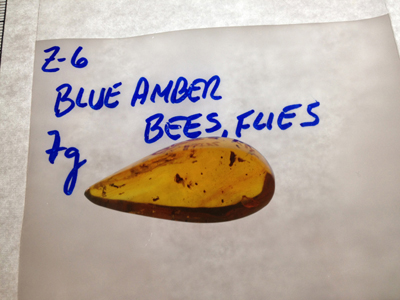 Z-6
BLUE AMBER
BEES, FLIES
7g